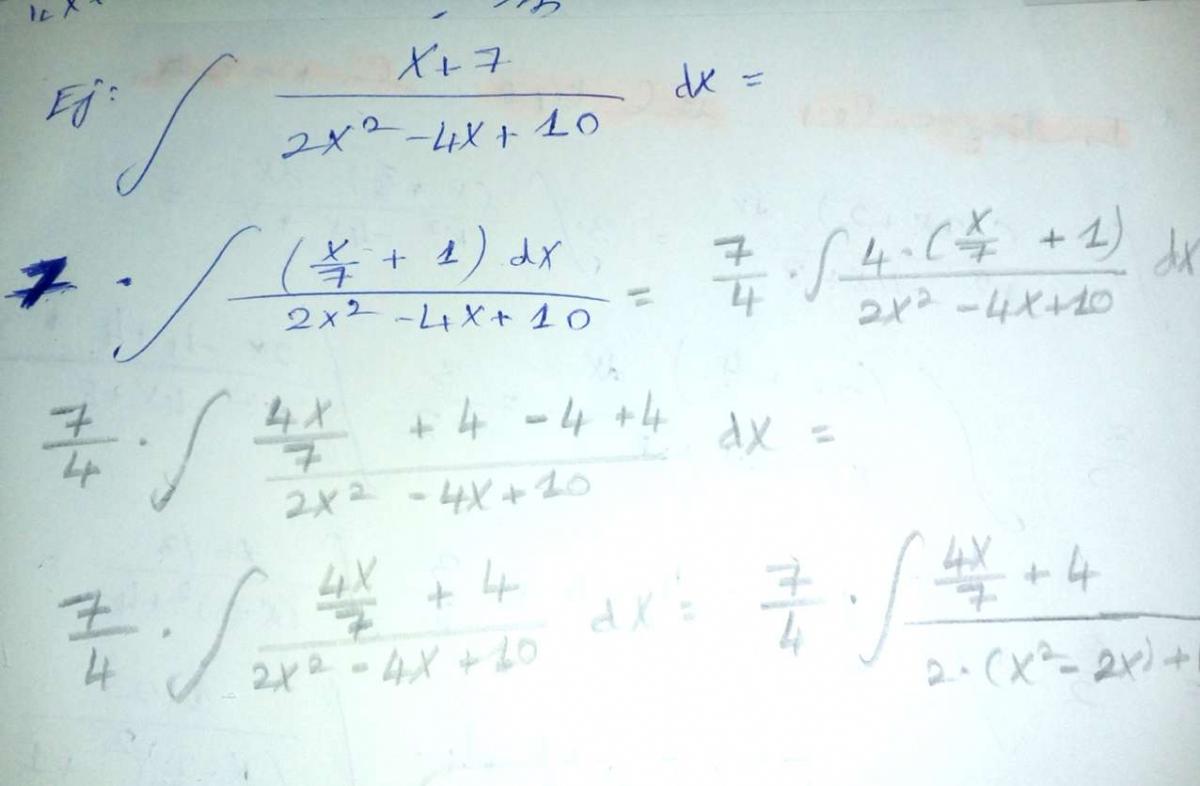 Ej: ∫ (x+7)/(2x²-4x+10) dx =
7 · ∫ ((x/7 + 1) dx)/(2x²-4x+10) = 7/4 · ∫ (4·(x/7 + 1))/(2x²-4x+10) dx
7/4 · ∫ (4x/7 + 4 - 4 + 4)/(2x²-4x+10) dx =
7/4 · ∫ (4x/7 + 4)/(2x²-4x+10) dx = 7/4 · ∫ (4x/7 + 4)/(2·(x²-2x)+